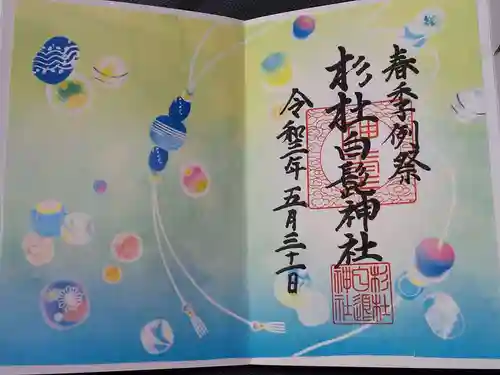 春季例祭
杉杜白髭神社
令和三年五月三十一日
杉杜
白髭
神社